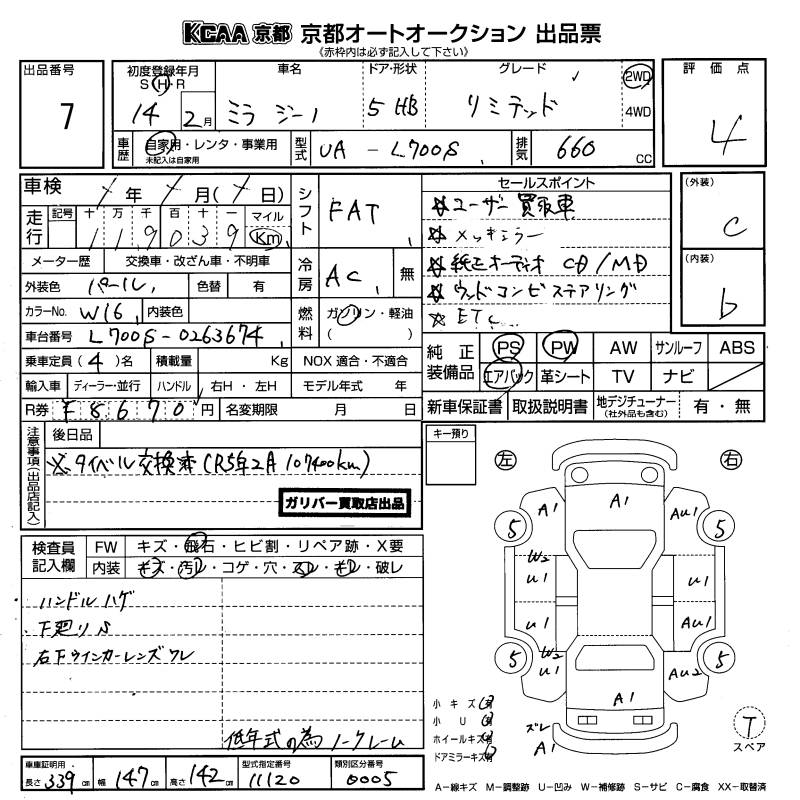 KCAA 京都 京都オートオークション 出品票
《赤枠内は必ず記入して下さい》
出品番号
7
初度登録年月
S・H・R
14 2月
車名
ミラ ジーノ
ドア・形状
5 HB
グレード
リミテッド
2WD
4WD
評価点
4
車歴
自家用・レンタ・事業用
未記入は自家用
型式
UA - L700S
排気
660 cc
車検
年 月( 日)
走行
記号 十 万 千 百 十 一 マイル
1 1 9 0 3 9 Km
メーター歴 交換車・改ざん車・不明車
外装色 パール 色替 有
カラーNo. W16 内装色
車台番号 L700S-0263674
乗車定員(4)名 積載量 Kg
輸入車 ディーラー・並行 ハンドル 右H・左H
R券 ¥8670円 名変期限 月 日
シフト
FAT
冷房
AC 無
燃料
ガソリン・軽油
( )
NOX 適合・不適合
モデル年式 年
セールスポイント
☆ユーザー買取車
☆メッキミラー
☆純正オーディオ CD/MD
☆ウッドコンビステアリング
☆ETC
(外装)
C
(内装)
b
純正装備品
PS PW AW サンルーフ ABS
エアバック 革シート TV ナビ
新車保証書 取扱説明書 地デジチューナー (社外品も含む) 有・無
注意事項(出品店記入)
後日品
※タイベル交換済(R5年2月 107400km)
ガリバー買取店出品
キー預り
左
右
検査員記入欄
FW キズ・飛石・ヒビ割・リペア跡・X要
内装 キズ・汚レ・コゲ・穴・スレ・モレ・破レ
・ハンドルハゲ
・下廻りS
右下ウインカーレンズワレ
低年式の為ノークレーム
A1 A1 AU1
5 5
W2
U1 U1
U1 AU1
W2
U1 AU2
5 5
A1
ズレ
A1
小キズ有
小U有
ホイールキズ有
ドアミラーキズ有
T
スペア
車庫証明用
長さ 339cm 幅 147cm 高さ 142cm
型式指定番号
11120
類別区分番号
0005
A−線キズ M−調整跡 U−凹み W−補修跡 S−サビ C−腐食 XX−取替済